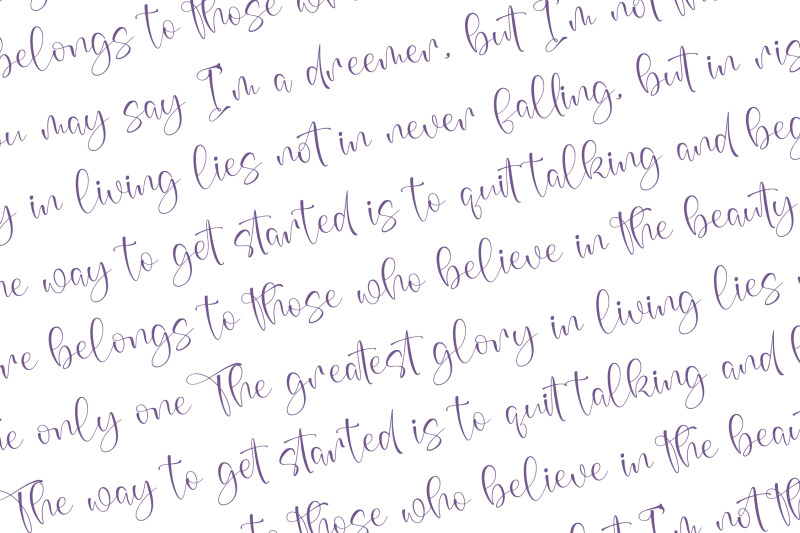 belongs to those
you may say I'm a dreemer, but I'm not the
in living lies not in never falling, but in ris
way to get started is to quit talking and beg
re belongs to those who believe in the beauty
only one The greatest glory in living lies
The way to get started is to quit talking and b
to those who believe in the beau
but I'm not th